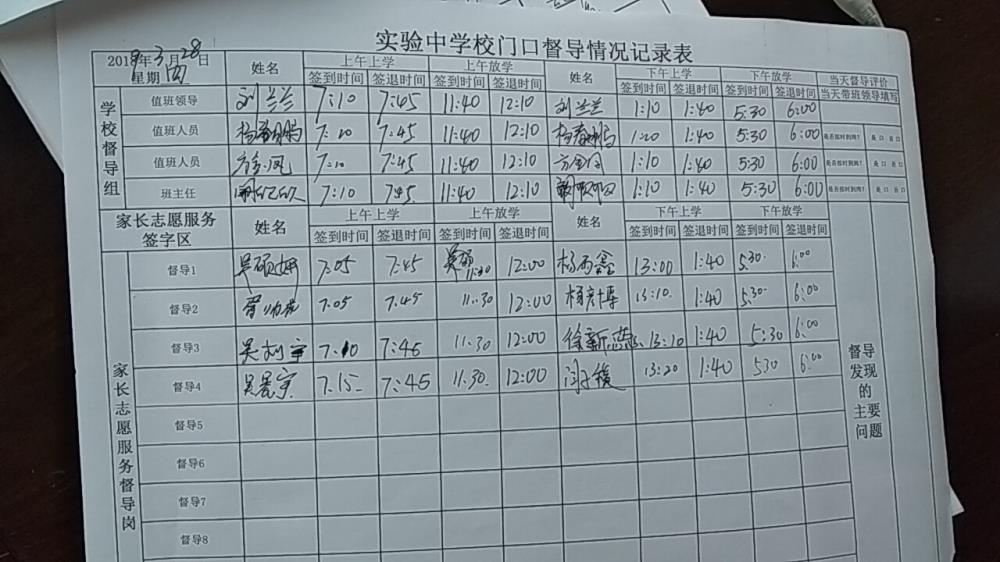 实验中学校门口督导情况记录表
2019年3月28日
星期 四
姓名 上午上学 上午放学 姓名 下午上学 下午放学 当天督导评价
签到时间 签退时间 签到时间 签退时间 签到时间 签退时间 签到时间 签退时间 当天带班领导填写
学校督导组
值班领导 刘兰兰 7:10 7:45 11:40 12:10 刘兰兰 1:10 1:40 5:30 6:00
值班人员 7:20 7:45 11:40 12:10 1:20 1:40 5:30 6:00 是否按时到岗? 是口 否口
值班人员 7:10 7:45 11:40 12:10 1:10 1:40 5:30 6:00 是否按时到岗? 是口 否口
班主任 7:10 7:45 11:40 12:10 1:10 1:40 5:30 6:00 是否按时到岗? 是口 否口
家长志愿服务
签字区
姓名 上午上学 上午放学 姓名 下午上学 下午放学
签到时间 签退时间 签到时间 签退时间 签到时间 签退时间 签到时间 签退时间
家长志愿服务督导岗
督导1 吴硕妍 7:05 7:45 吴硕 11:30 12:00 13:00 1:40 5:30 6:00
督导2 7:05 7:45 11:30 12:00 13:10 1:40 5:30 6:00
督导3 7:10 7:45 11:30 12:00 徐新蕊 13:10 1:40 5:30 6:00
督导4 7:15 7:45 11:30 12:00 13:20 1:40 5:30 6:00
督导5
督导6
督导7
督导8
督导
发现
的
主要
问题